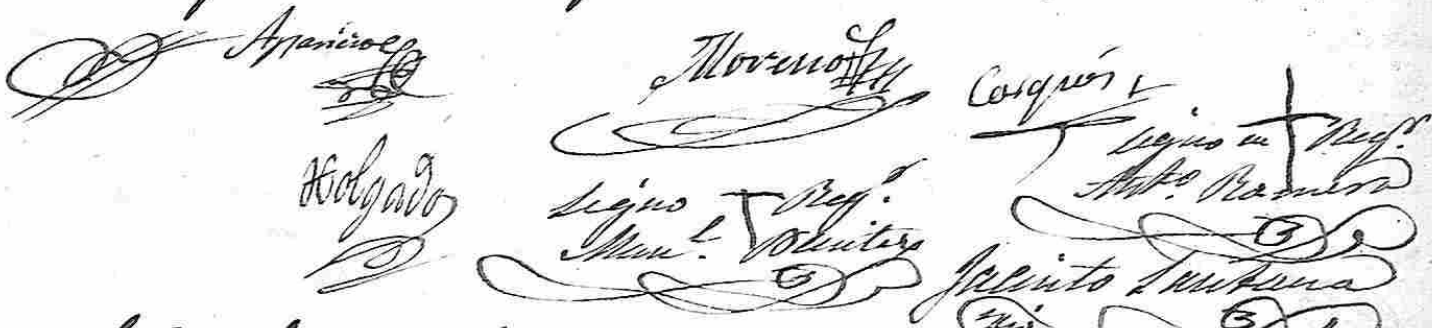 Aparicio
Moreno
Casquós
Holgado
signo + Regr.
Manl. Benitez
signo en + Regr.
Anto. Romero
Jacinto Santana